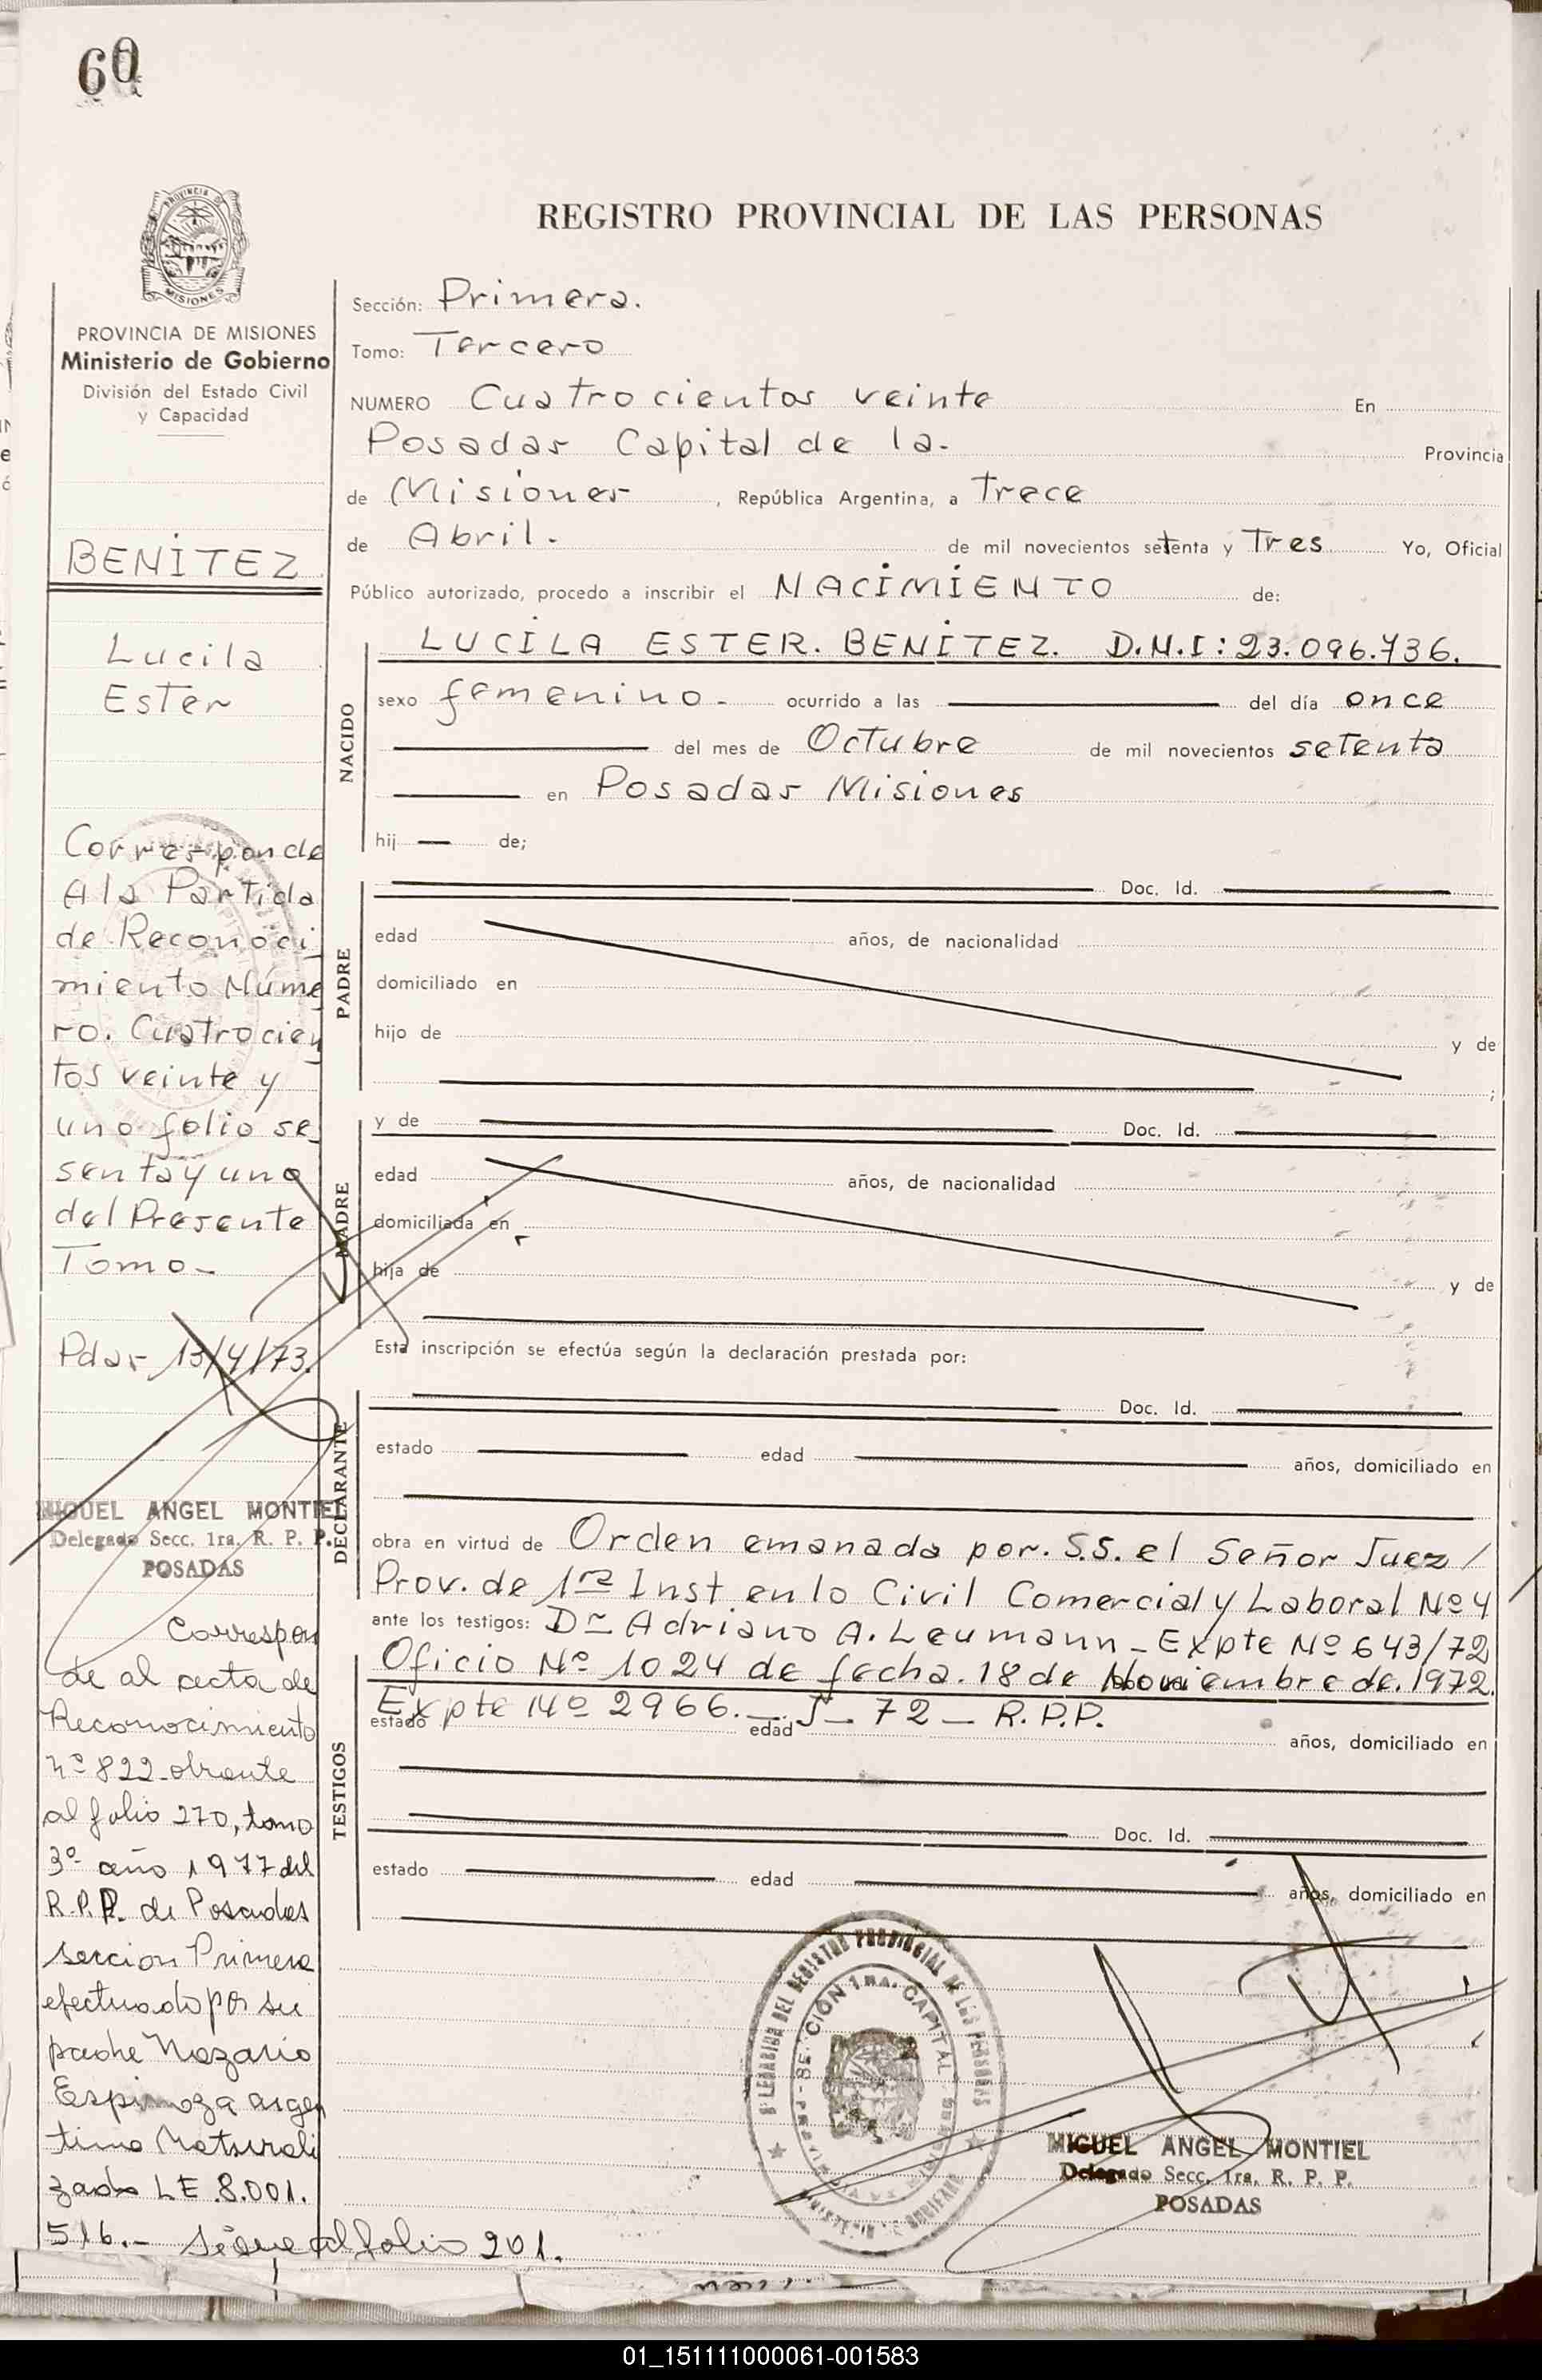 60
REGISTRO PROVINCIAL DE LAS PERSONAS
PROVINCIA DE MISIONES
Ministerio de Gobierno
División del Estado Civil
y Capacidad
BENITEZ
Lucila
Ester
Corresponde
A la Partida
de Reconoci
miento Núme
ro. Cuatrocien
tos veinte y
uno folio se_
senta y uno
del Presente
Tomo_
Pdas 13/4/73.
MIGUEL ANGEL MONTIEL
Delegado Secc. 1ra. R. P. P.
POSADAS
Correspon
de al acta de
Reconocimiento
nº 822 obrante
al folio 270, tomo
3º año 1977 del
R.P.P. de Posadas
sección Primera
efectuado por su
padre Nazario
Espinoza argen
tino Naturali
zado LE 8.001.
516.- Sigue al folio 201.
Sección: Primera.
Tomo: Tercero
NUMERO Cuatrocientos veinte En
Posadas Capital de la- Provincia
de Misiones, República Argentina, a Trece
de Abril. de mil novecientos setenta y Tres Yo, Oficial
Público autorizado, procedo a inscribir el NACIMIENTO de:
NACIDO
LUCILA ESTER. BENITEZ. D.N.I: 23.096.736.
sexo femenino- ocurrido a las del día once
del mes de Octubre de mil novecientos setenta
en Posadas Misiones
hij de;
PADRE
Doc. Id.
edad años, de nacionalidad
domiciliado en
hijo de y de
;
MADRE
y de Doc. Id.
edad años, de nacionalidad
domiciliada en
hija de y de
Esta inscripción se efectúa según la declaración prestada por:
DECLARANTE
Doc. Id.
estado edad años, domiciliado en
obra en virtud de Orden emanada por. S.S. el Señor Juez /
Prov. de 1ra Inst en lo Civil Comercial y Laboral Nº 4
ante los testigos: Dr Adriano A. Leumann - Expte Nº 643/72
TESTIGOS
Oficio Nº 1024 de fecha. 18 de Noviembre de. 1972.
Expte Nº 2966._ J_ 72 _ R.P.P.
estado edad años, domiciliado en
Doc. Id.
estado edad años, domiciliado en
DEL REGISTRO PROVINCIAL DE LAS PERSONAS
SECCION 1RA. CAPITAL
MIGUEL ANGEL MONTIEL
Delegado Secc. 1ra. R. P. P.
POSADAS
01_151111000061-001583